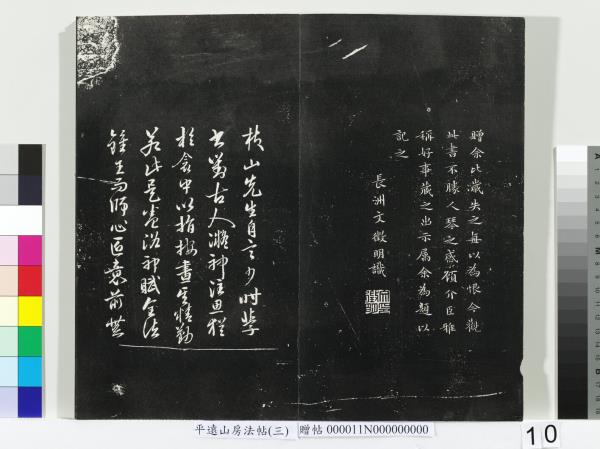 贈余比歲失之每以為恨今觀
此書不勝人琴之感顧介臣雅
稱好事藏之出示屬余為題以
記之
長洲文徵明識
枝山先生自言少時學
書對古人凝神注思猶
於衾中以指撥畫其精勤
若此是卷洛神賦全法
鍾王而師心匠意前無
平遠山房法帖(三)
贈帖 000011N000000000
10